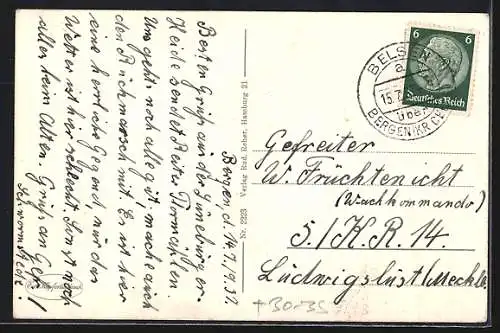 Bergen, d. 14.7.1937.
Besten Gruß aus der Lüneburger
Heide sendet Reiter Thormählen
Uns geht's noch alle gut. mache auch
den Rückmarsch mit. Es ist hier
eine herrliche Gegend, nur das
Wetter ist hier schlecht. Sonst noch
alles beim Alten. Gruß an Gefr.
Schwormstede.
Nr. 2223 Verlag Rud. Reher, Hamburg 21
6 6
Deutsches Reich
BELSEN
15.7.
über
BERGEN (KR. CE
Gefreiter
W. Früchtenicht
(Wachkommando)
5./K.R. 14.
Ludwigslust/Meckle
30-35